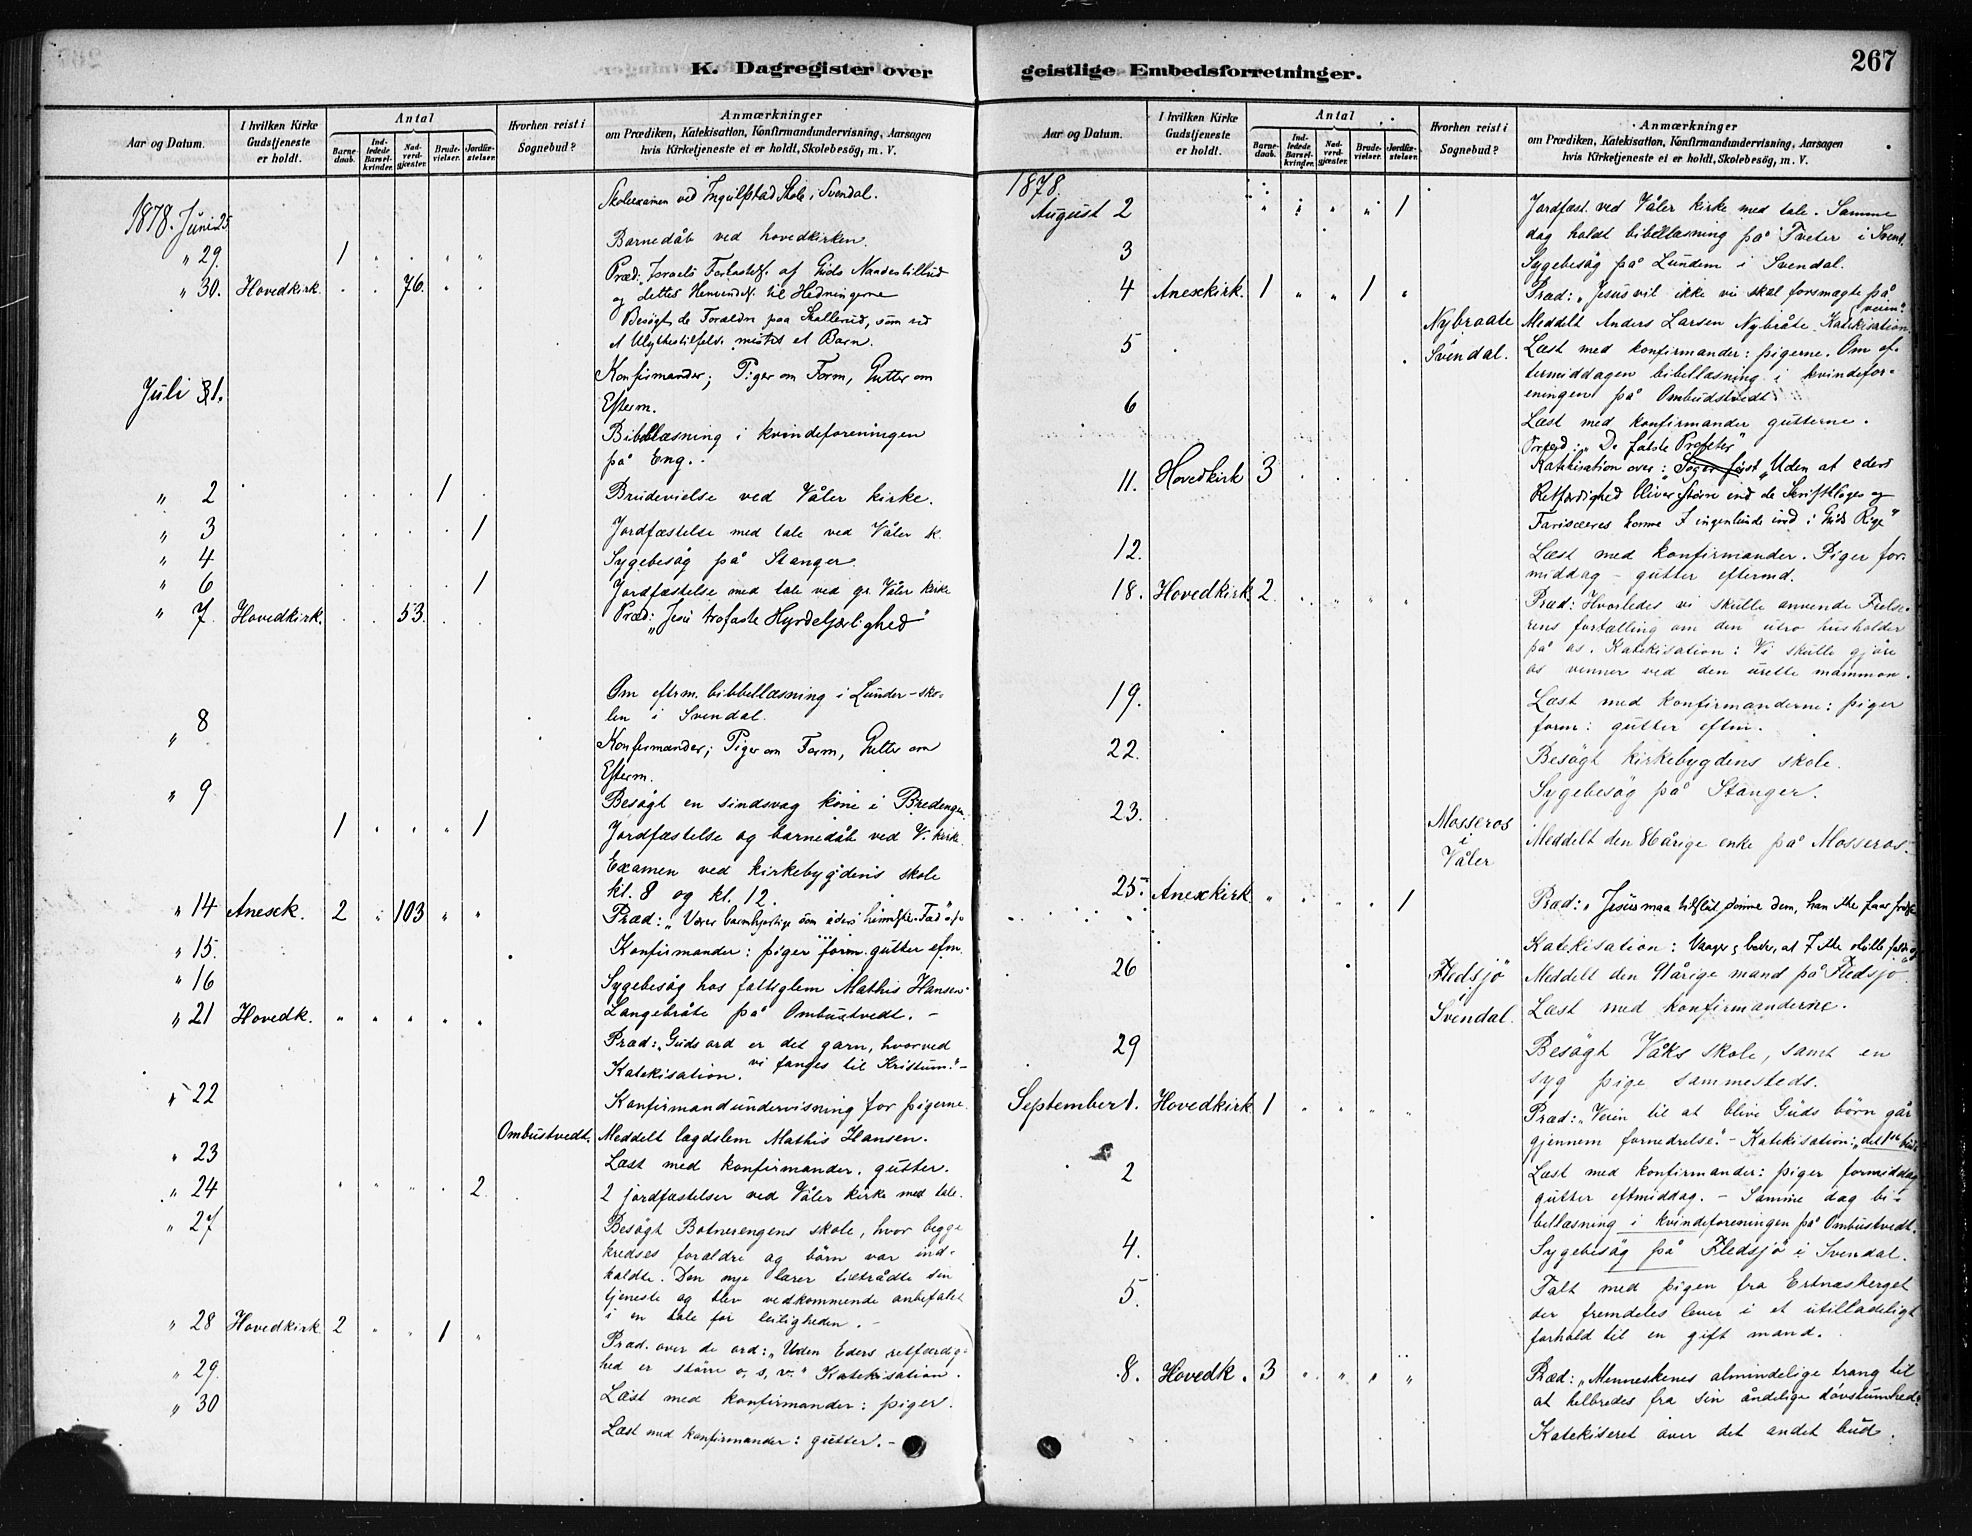 267
K. Dagregister over
geistlige Embedsforretninger.
Aar og Datum.
I hvilken Kirke Gudstjeneste er holdt.
Antal
Barnedaab.
Indledede Barselkvinder.
Nadverdgjæster.
Brudevielser.
Jordfæstelser.
Hvorhen reist i Sognebud?
Anmærkninger
om Prædiken, Katekisation, Konfirmandundervisning, Aarsagen
hvis Kirketjeneste ei er holdt, Skolebesög, m. V.
1878. Juni 25
Skoleexamen ved Ingulfstad Skole i Svendal.
" 29. 1 Barnedåb ved hovedkirken.
" 30. Hovedkirk. 76. Præd: Israels Forkastels. af Guds Naadestilbud
og dettes Henvendels. til Hedningerne
Besøgt de Forældre paa Skallerud, som ved
et Ulykkestilfælde mistet et Barn.
Juli 1. Konfirmander; Piger om Form, Gutter om
Efterm.
Bibellæsning i kvindeforeningen
på Eng.
" 2 1 Brudevielse ved Våler kirke.
" 3 1 Jordfæstelse med tale ved Våler k.
" 4 Sygebesøg på Stanger.
" 6 1 Jordfæstelse med tale ved gr. Våler kirke
" 7. Hovedkirk. 53. Præd: „Jesu trofaste Hyrdekjærlighed"
Om eftrm. bibbellæsning i Lunder-sko-
len i Svendal.
" 8 Konfirmander; Piger om Form, Gutter om
Efterm.
" 9 Besøgt en sindsvag kone i Bredengen
1 1 Jordfæstelse og barnedåb ved V. kirke.
Examen ved kirkebygdens skole
kl. 8 og kl. 12.
" 14 Anexk. 2 103 Præd: „Værer barmhjertige som eders himmelske Fad"
" 15. Konfirmander: piger form. gutter efm.
" 16 Sygebesøg hos fattiglem Mathis Hansen
Langebråte på Ombustvedt. –
" 21 Hovedk. Præd: „Guds ord er det garn, hvorved
vi fanges til Kristum." –
Katekisation.
" 22 Konfirmandundervisning for pigerne.
Ombustvedt. Meddelt lægdslem Mathis Hansen.
" 23 Læst med konfirmander. gutter.
" 24 2 2 jordfæstelser ved Våler kirke med tale.
" 27 Besøgt Botnerengens skole, hvor begge
kredses forældre og børn var ind-
kaldte. Den nye lærer tiltrådte sin
tjeneste og blev vedkommende anbefalet
i en tale for leiligheden. –
" 28 Hovedkirk 2 1 Præd. over de ord: „Uden Eders retfærdig-
hed er større o, s, v." Katekisation.
" 29. Læst med konfirmander: piger.
" 30 Læst med konfirmander: gutter. –
Aar og Datum.
I hvilken Kirke Gudstjeneste er holdt.
Antal
Barnedaab.
Indledede Barselkvinder.
Nadverdgjæster.
Brudevielser.
Jordfæstelser.
Hvorhen reist i Sognebud?
Anmærkninger
om Prædiken, Katekisation, Konfirmandundervisning, Aarsagen
hvis Kirketjeneste ei er holdt, Skolebesög, m. V.
1878.
August 2 1 Jordfæst. ved Våler kirke med tale. Samme
dag holdt bibellæsning på Tveter i Svend.
3 Sygebesøg på Lundem i Svendal.
4 Anexkirk. 1 1 Præd: „Jesus vil ikke vi skal forsmægte på
veien."
Nybraate Meddelt Anders Larsen Nybråte. Katekisation
5 Svendal. Læst med konfirmander: pigerne. Om ef-
termiddagen bibellæsning i kvindefor-
eningen på Ombudstvedt.
6 Læst med konfirmander gutterne.
Præd: „De falske Profeter"
11. Hovedkirk 3 Katekisation over: „Uden at eders
Retfærdighed bliver større end de Skriftkloges og
Farisæeres komme I ingenlunde ind i Guds Rige"
12. Læst med konfirmander. Piger for-
middag – gutter eftermd.
18. Hovedkirk. 2 Præd: Hvorledes vi skulle anvende Frelse-
rens fortælling om den utro husholder
på os. Katekisation: Vi skulle gjøre
os venner ved den urette mammon.
19. Læst med konfirmanderne: piger
form: gutter eftm.
22. Besøgt kirkebygdens skole.
Sygebesøg på Stanger.
23. Mosseros i Våler Meddelt den 86 årige enke på Mosseros.
25. Anexkirk 1 Præd: „Jesus maa tilslut dømme dem, han ikke faar frelse
Katekisation: Vaager og beder, at I ikke skulle falde
26 Fledsjö Svendal. Meddelt den årige mand på Fledsjö
Læst med konfirmanderne.
29 Besøgt Våks skole, samt en
syg pige sammesteds.
September 1. Hovedkirk 1 Præd: „Veien til at blive Guds børn går
gjennem fornedrelse." – Katekisation: „det 1ste bud"
2 Læst med konfirmander: piger formiddag
gutter eftmiddag. – Samme dag bi-
bellæsning i kvindeforeningen på Ombustvedt.
4. Sygebesøg på Fledsjö i Svendal.
5. Talt med pigen fra Ertnæsberget
der fremdeles lever i et utilladeligt
forhold til en gift mand.
8. Hovedk. 3 Præd: „Menneskenes almindelige trang til
at helbredes fra sin åndelige døvstumhed"
Katekiseret over det andet bud.